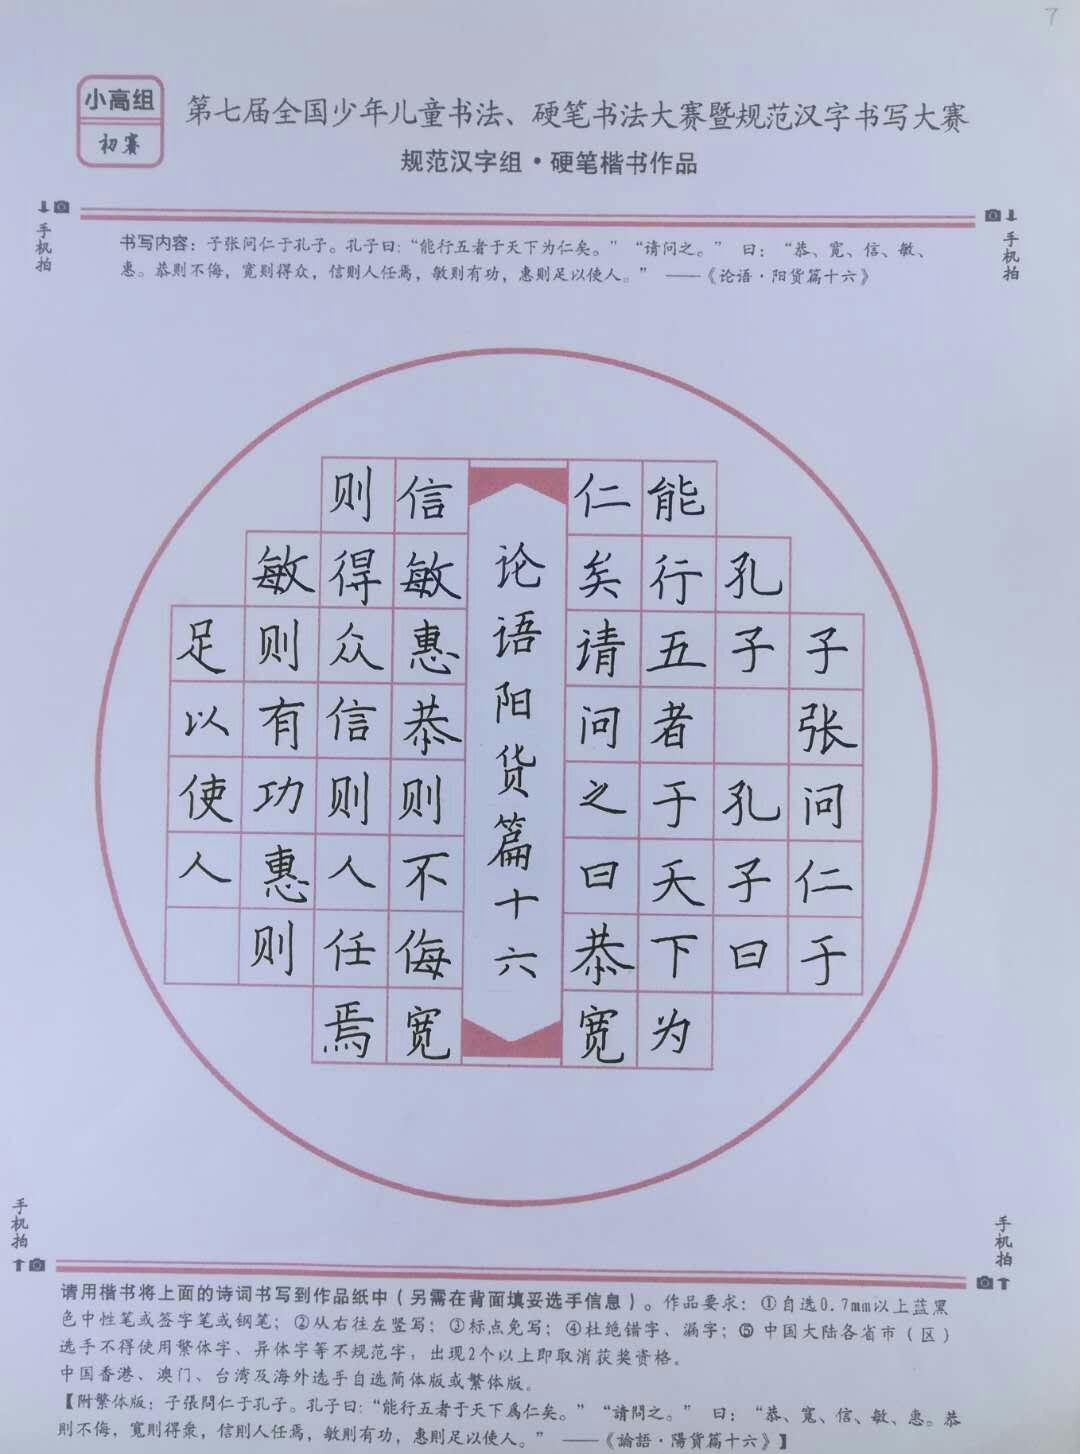 7
小高组
初赛
第七届全国少年儿童书法、硬笔书法大赛暨规范汉字书写大赛
规范汉字组·硬笔楷书作品
手机拍
手机拍
书写内容：子张问仁于孔子。孔子曰：“能行五者于天下为仁矣。”“请问之。” 曰：“恭、宽、信、敏、
惠。恭则不侮，宽则得众，信则人任焉，敏则有功，惠则足以使人。” ——《论语·阳货篇十六》
子张问仁于
孔子 孔子曰
能行五者于天下为
仁矣请问之曰恭宽
论语阳货篇十六
信敏惠恭则不侮宽
则得众信则人任焉
敏则有功惠则
足以使人
手机拍
手机拍
请用楷书将上面的诗词书写到作品纸中（另需在背面填妥选手信息）。作品要求：①自选0.7mm以上蓝黑
色中性笔或签字笔或钢笔；②从右往左竖写；③标点免写；④杜绝错字、漏字；⑤中国大陆各省市（区）
选手不得使用繁体字、异体字等不规范字，出现2个以上即取消获奖资格。
中国香港、澳门、台湾及海外选手自选简体版或繁体版。
【附繁体版：子張問仁于孔子。孔子曰：“能行五者于天下爲仁矣。”“請問之。” 曰：“恭、寬、信、敏、惠。恭
則不侮，寬則得衆，信則人任焉，敏則有功，惠則足以使人。” ——《論語·陽貨篇十六》】